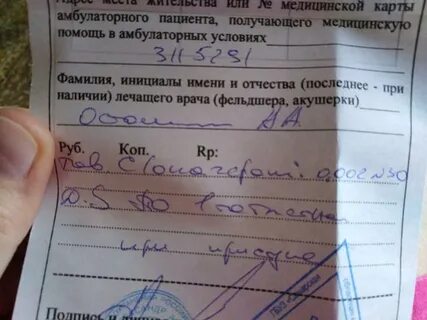 Адрес места жительства или № медицинской карты
амбулаторного пациента, получающего медицинскую
помощь в амбулаторных условиях
311-5291
Фамилия, инициалы имени и отчества (последнее - при
наличии) лечащего врача (фельдшера, акушерки)
А.А.
Руб. Коп. Rp:
Tab. Clonazepami 0,002 N30
D.S. По 1 таблетке
при
Подпись и